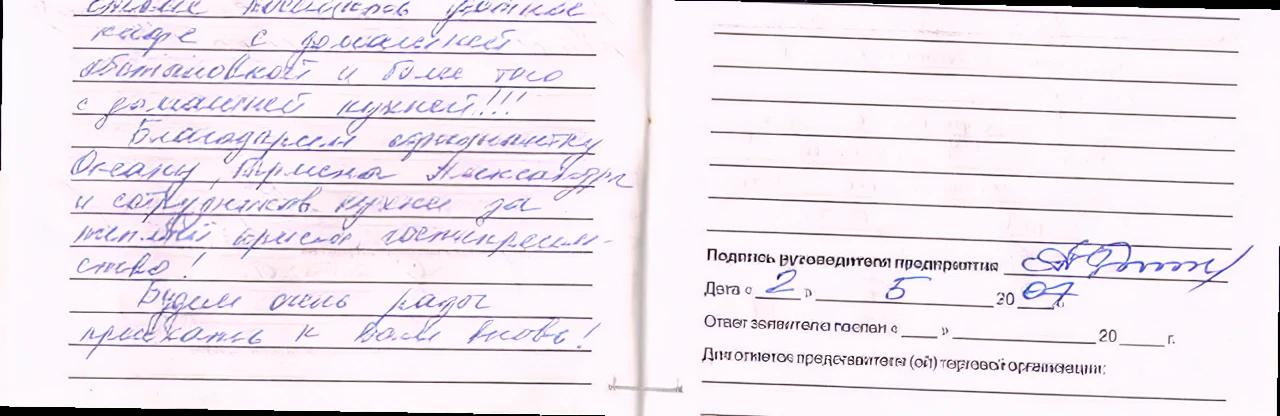 кафе с домашней
обстановкой и более того
с домашней кухней!!!
Благодарим официантку
Оксану, бармена Александра
и сотрудников кухни за
теплый прием, гостеприим-
ство!
Будем очень рады
приехать к вам вновь!
Подпись руководителя предприятия
Дата « 2 » 5 20 07 г.
Ответ заявителю послан « » 20 г.
Для отметок представителя (ой) торговой организации: